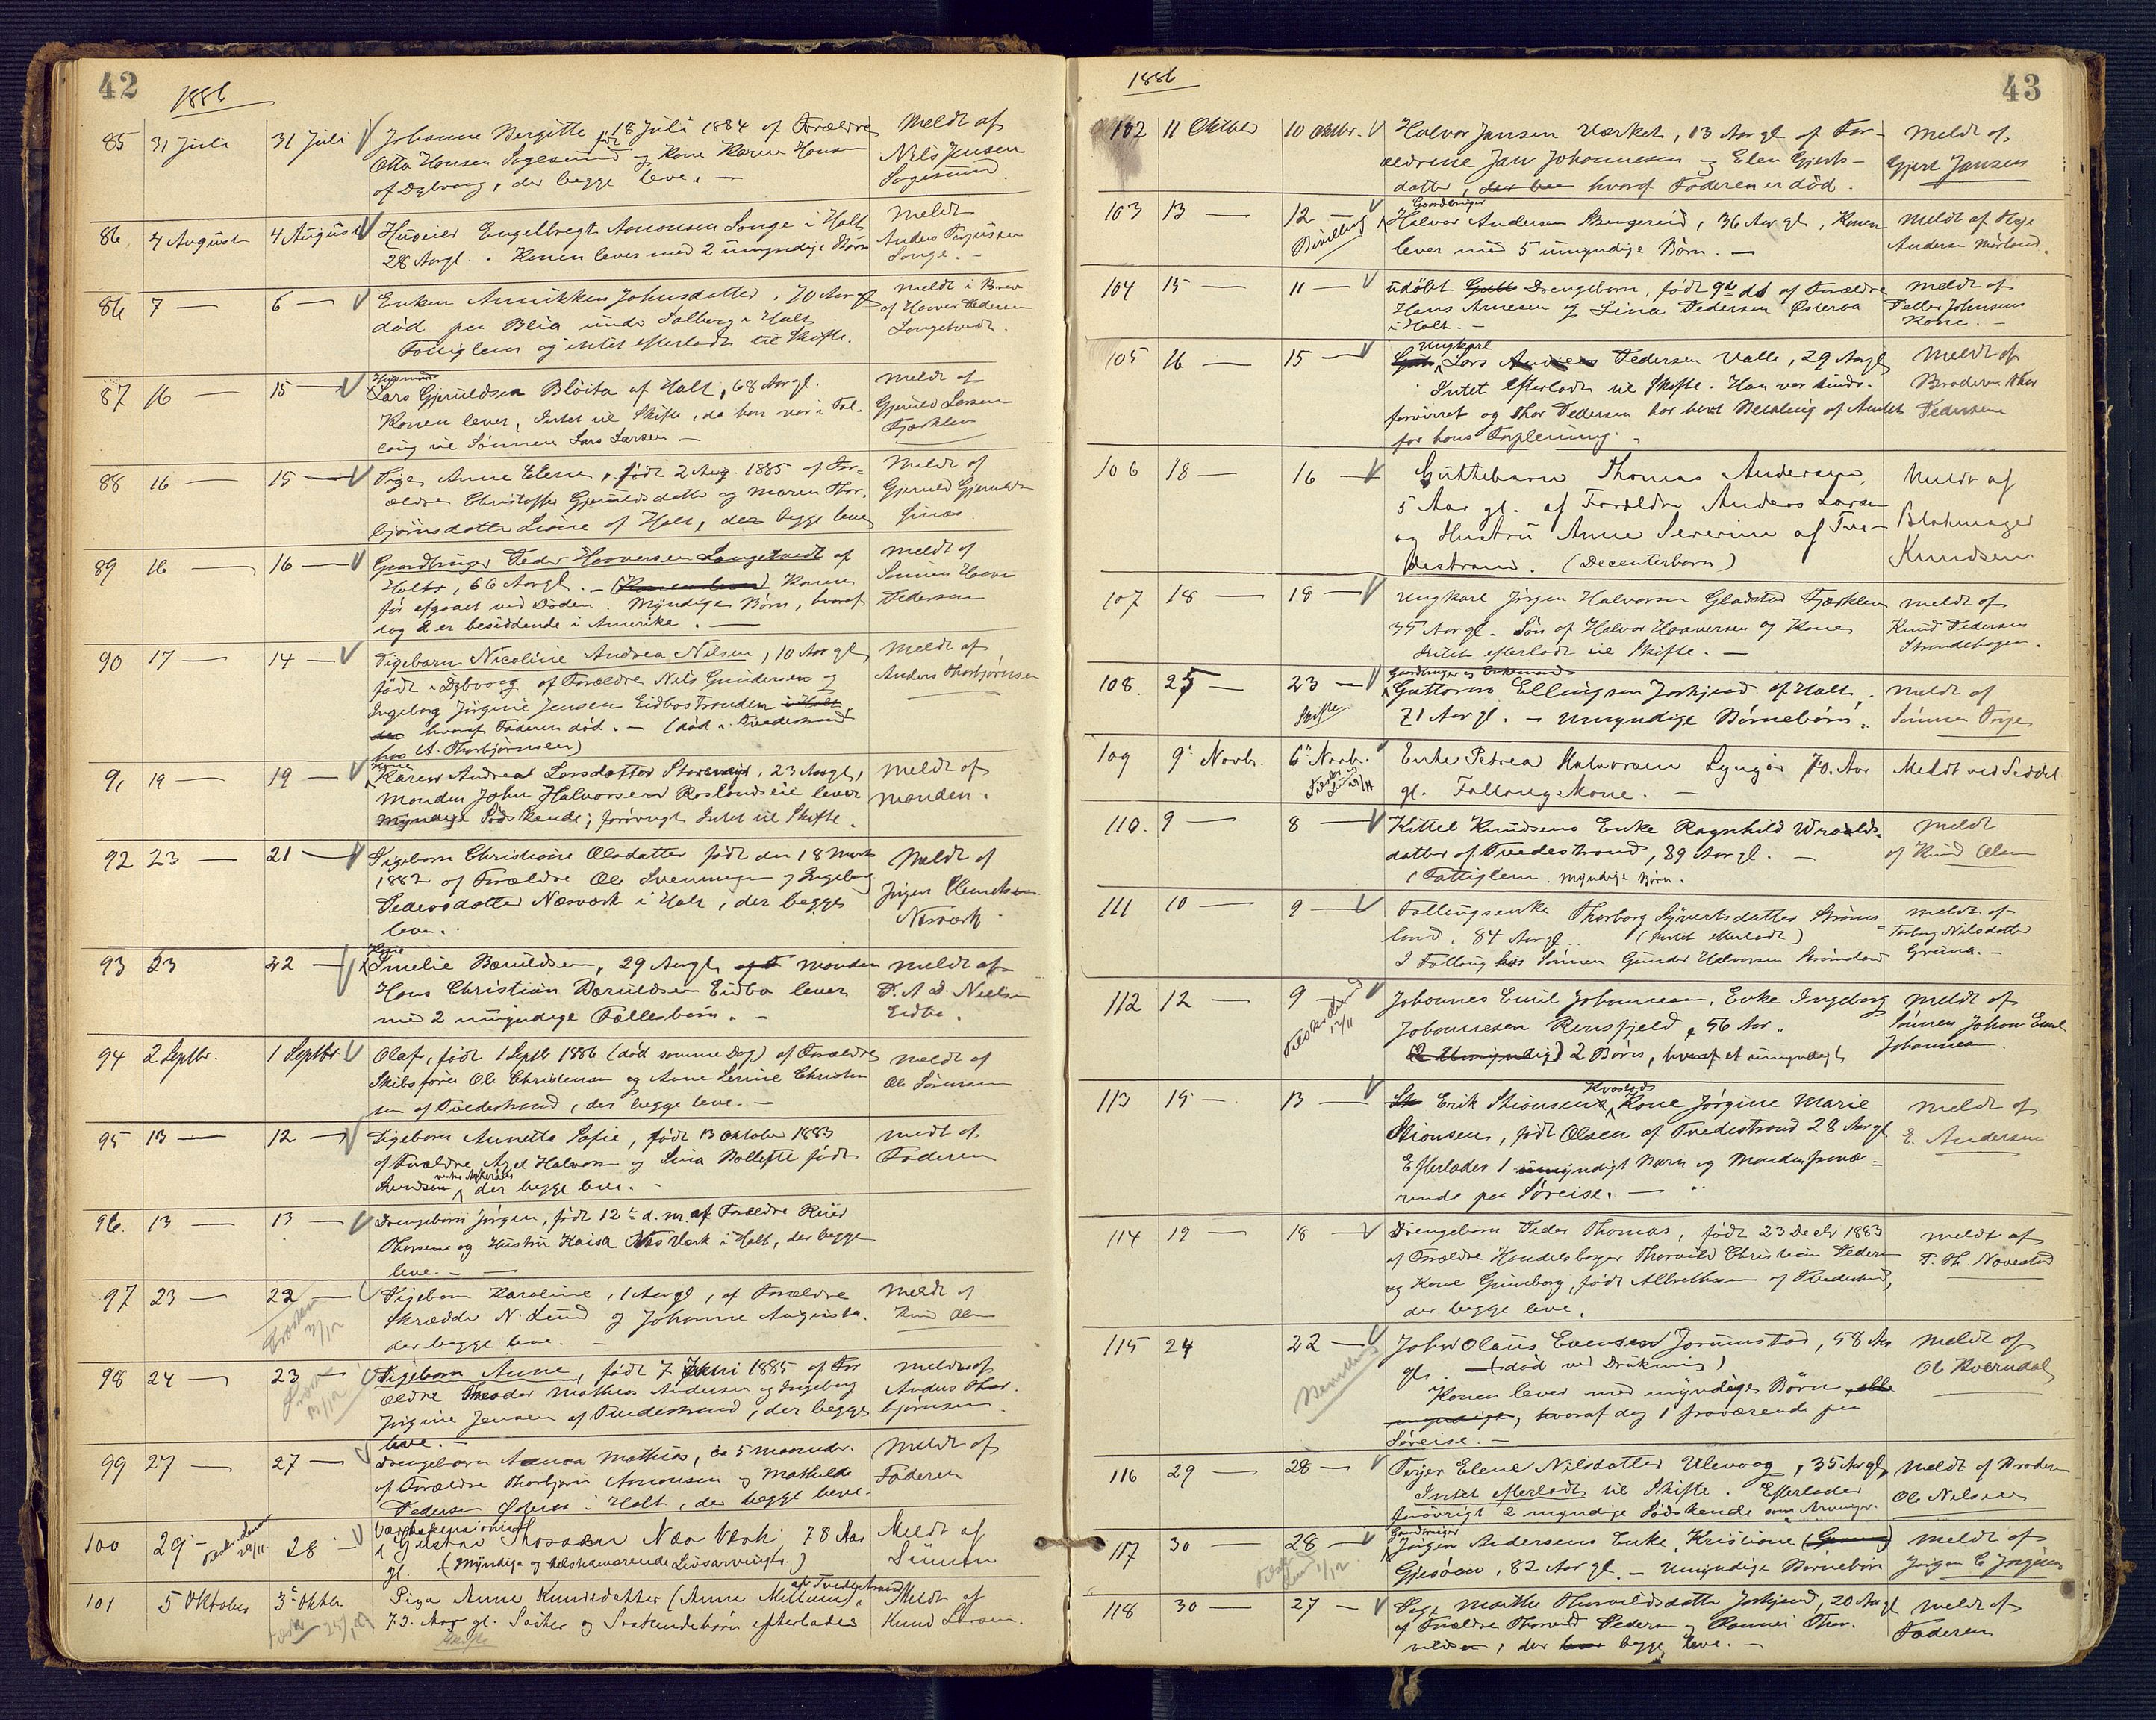 42
1886
85 31 Juli 31 Juli Johanne Bergitte født 18 Juli 1884 af Forældre Meldt af
Otto Hansen Sagesund og Kone Karen Hansen Nils Jensen
af Dybvaag, der begge leve. — Sagesund.
86 4 August 4 August Huseier Engelbregt Amonsen Songe i Holt Meldt
28 Aar gl. Konen lever med 2 umyndige Børn Anders Terjussen
Songe. —
86 7 — 6 — Enken Annikken Johnsdatter. 70 Aar gl Meldt i Brev
død paa Blia under Solberg i Holt af Haaver Pedersen
Fattiglem og intet efterladt til Skifte. Langetvedt.
87 16 — 15 — Huusmand
Lars Gjeruldsen Bløita af Holt, 68 Aar gl. Meldt af
Konen lever, Intet til Skifte, da han var i Fol- Gjeruld Larsen
laug til Sønnen Lars Larsen — Fjærklev
88 16 — 15 — Pige Anne Elene, født 2 Aug. 1885 af For- Meldt af
ældre Christoffer Gjeruldsdatter og Maren Thor- Gjeruld Gjeruldsen
bjørnsdatter af Holt, der begge leve
89 16 — 16 — Gaardbruger Peder Haaversen Langetvedt af Meldt af
Holt, 66 Aar gl. — (Konen lever) Konen Sønnen Haaver
før afgaaet ved Døden. Myndige Børn, hvoraf Pedersen
og 2 er besiddende i Amerika. —
90 17 — 14 — Pigebarn Nicoline Andrea Nilsen, 10 Aar gl, Meldt af
født i Dybvaag af Forældre Nils Gundersen og Anders Thorbjørnsen
Ingeborg Jørgine Jensen Eidbostranden i Holt,
der hvoraf Faderen død. — (død i Tvedestrand
hos A. Thorbjørnsen)
91 19 — 19 — Kone
Karen Andrea Larsdatter, 23 Aar gl, Meldt af
Manden John Halvorsen Roslandseie lever Manden.
Myndige Sødskende; forøvrigt Intet til Skifte.
92 23 — 21 — Pigebarn Christiane Olsdatter født den 18 Marts Meldt af
1882 af Forældre Ole Svenningsen og Ingeborg Jørgen Clemetsen
Pedersdatter Næsværk i Holt, der begge Næsværk.
leve.
93 23 22 — Kone
Emelie Baruldsen, 29 Aar gl af F Manden Meldt af
Hans Christian Baruldsen Eidbo lever P. A. D. Nielsen
med 2 umyndige Fællesbørn. — Eidbo.
94 2 Septbr. 1 Septbr Olaf, født 1 Septb 1886 (død samme Dag) af Forældre Meldt af
Skibsfører Ole Christensen og Anne Serine Christen- Ole Sørensen
sen af Tvedestrand, der begge leve. —
95 13 — 12 — Pigebarn Annette Sofie, født 13 Oktober 1883 Meldt af
af Forældre Axel Halvorsen og Lina Bollette født Faderen
Arendsen, der begge leve. —
96. 13 — 13 — Drengebarn Jørgen, født 12te d. M. af Forældre
Thorsen og Hustru Kaisa Næs Værk i Holt, der begge
leve. —
97 23 — 22 — Pigebarn Karoline, 1 Aar gl, af Forældre Meldt af
Skrædder N. Lund og Johanne Augusta. Knud Olsen
der begge leve. —
98 24 — 23 — Pigebarn Anne, født 7 Juni 1885 af For- Meldt af
ældre Theodor Mathias Andersen og Ingeborg Anders Thor-
Jørgine Jensen af Tvedestrand, der begge bjørnsen.
leve. —
99 27 — 27 — Drengebarn Mathias, ca 5 Maaneder. Meldt af
af Forældre Thorbjørn Amonsen og Mathilde Faderen
Pedersen i Holt, der begge leve.
100 29 — 28 — Værkspensionist
Gustav Thorsen Næs Værk, 78 Aar Meldt af
gl. (Myndige og tilstedeværende Livsarvinger.) Sønnen
101 5 Oktober 3 Oktbr. Pige Anne Knudsdatter (Anne) af Tvedestrand, Meldt af
73 Aar gl. Søster og Søskendebørn efterlades Knud Larsen.
Skifte
43
1886
102 11 Oktober 10 Oktbr. Halvor Jansen Værket, 13 Aar gl af For- Meldt af
ældrene Jan Johannesen og Elen Gjerts- Gjert Jansen
datter, der hvoraf Faderen er død.
103 13 — 12 — Gaardbruger
Halvor Andersen, 36 Aar gl, Konen Meldt af
lever med 5 umyndige Børn. — Andersen Mørland.
104 15 — 11 — Udøbt Drengebarn, født 9de ds af Forældre Meldt af
Hans Arnesen og Lina Pedersen Østeraa Johnsens
i Holt. — Kone. —
105 16 — 15 — Ungkarl
Lars Pedersen Valle, 29 Aar gl Meldt af
Intet efterladt til Skifte. Han var sinds- Broderen Thor
forvirret og Thor Pedersen har havt Betaling af Amtet Pedersen
for hans Forpleining.
106 18 — 16 — Guttebarn Thomas Andersen, Meldt af
5 Aar gl. af Forældre Anders Larsen Blokmager
og Hustru Anne Severine af Tve- Knudsen
destrand. (Decenterbarn)
107 18 — 18 — Ungkarl Jørgen Halvorsen Gladstad Fjærklev Meldt af
35 Aar gl. Søn af Halvor Haaversen og Kone Knud Pedersen
Intet efterladt til Skifte. — Strandehagen.
108. 25 — 23 — Gaardbruger og Enkemand
Guttorm Ellingsen Joskjend af Holt, Meldt af
Skifte 71 Aar gl. — Umyndige Børnebørn. Sønnen Terje
109 9' Novb. 6' Novb. Enke Petrea Halvorsen Lyngør 70 Aar Meldt ved Seddel
gl. Følaugskone. —
110. 9 — 8 — Kittel Knudsens Enke Ragnhild Wraalds- Meldt
datter af Tvedestrand, 89 Aar gl. — af Knud Olsen
(Fattiglem. Myndige Børn.
111 10 — 9 — Føllaugsenke Thorborg Syvertsdatter Strøms- Meldt af
land. 84 Aar gl. (Intet efterladt) Torborg Nilsdatter
I Føllaug hos Sønnen Gunder Halvorsen Strømsland Greina. —
112 12 — 9 — Johannes Emil Johannesen, Enke Ingeborg Meldt af
Johannesen Rensfjeld, 56 Aar. Sønnen Johan Emil
(2 Umyndige) 2 Børn, hvoraf et umyndigt Johannesen.
113 15 — 13 — Kvastads
Erik Stiansens Kone Jørgine Marie Meldt af
Stiansen, født Olsen af Tvedestrand 28 Aar gl E. Andersen
Efterlader 1 umyndigt Barn og Manden fravæ-
rende paa Søreise. —
114 19 — 18 — Drengebarn Peder Thomas, født 23 Decbr 1883 Meldt af
af Forældre Handelsborger Thorvild Christian Pedersen T. Th. Navestad
og Kone Gunborg, født Albrethsen af Tvedestrand,
der begge leve.
115 24 22 — John Olaus Evensen Jorunstad, 58 Aar Meldt af
gl. — (død ved Drukning) Ole Kverndal
Konen lever med myndige Børn, alle
myndige, hvoraf dog 1 fraværende paa
Søreise. —
116 29 — 28 — Pige Elene Nilsdatter Ulevaag, 35 Aar gl, Meldt af Broderen
Intet efterladt til Skifte. Efterlader Ole Nilsen
forøvrigt 2 myndige Sødskende som Arvinger.
117 30 — 28 — Gaardbruger
Jørgen Andersens Enke, Kristiane Meldt af
Gjesøen, 82 Aar gl. — Umyndige Børnebørn Jørgen E. Jørgensen
118 30 — 27 — Pige Marthe Thorvildsdatter Joskjend, 20 Aar gl Meldt af
af Forældre Thorvild Pedersen og Thor- Faderen
vildsen, der begge leve. —